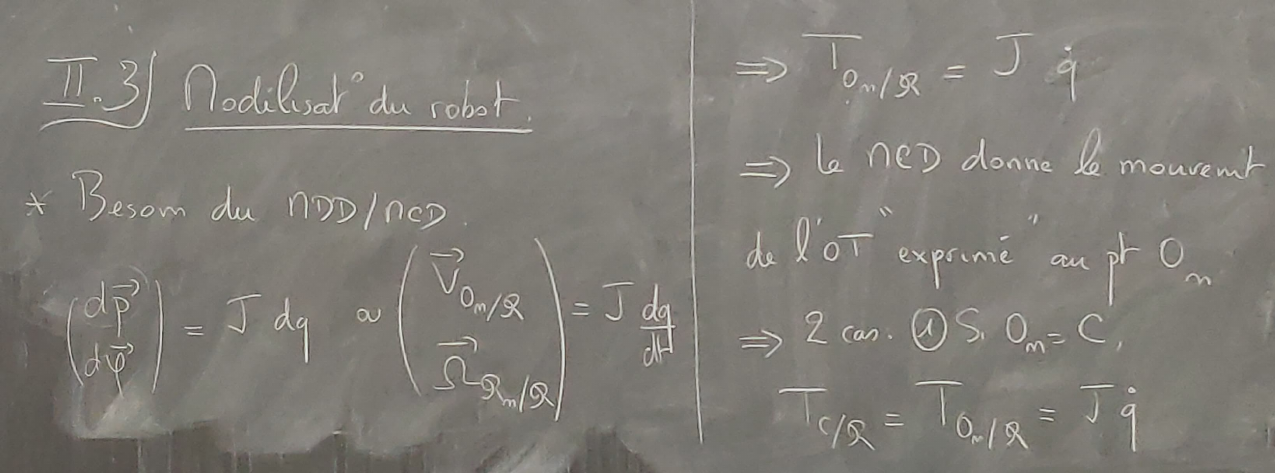 II.3) Modélisat° du robot.
* Besoin du MDD/MCD.
(dp⃗ dφ⃗) = J dq ou (V⃗_{Om/R} Ω⃗_{Rm/R}) = J dq/dt
⇒ T_{Om/R} = J q̇
⇒ Le MCD donne le mouvemt
de l'OT "exprimé" au pt O_m
⇒ 2 cas. ① Si O_m = C,
T_{C/R} = T_{Om/R} = J q̇